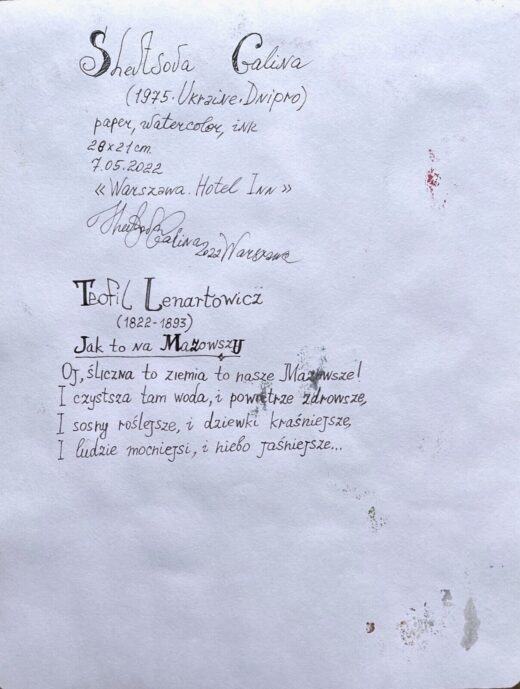 Sheutsova Galina
(1975. Ukraine. Dnipro)
paper, watercolor, ink
28x21cm
7.05.2022
«Warszawa. Hotel Inn»
Galina 2022 Warszawa
Teofil Lenartowicz
(1822-1893)
Jak to na Mazowszu
Oj, śliczna to ziemia to nasze Mazowsze!
I czystsza tam woda, i powietrze zdrowsze,
I sosny roślejsze, i dziewki kraśniejsze,
I ludzie mocniejsi, i niebo jaśniejsze...